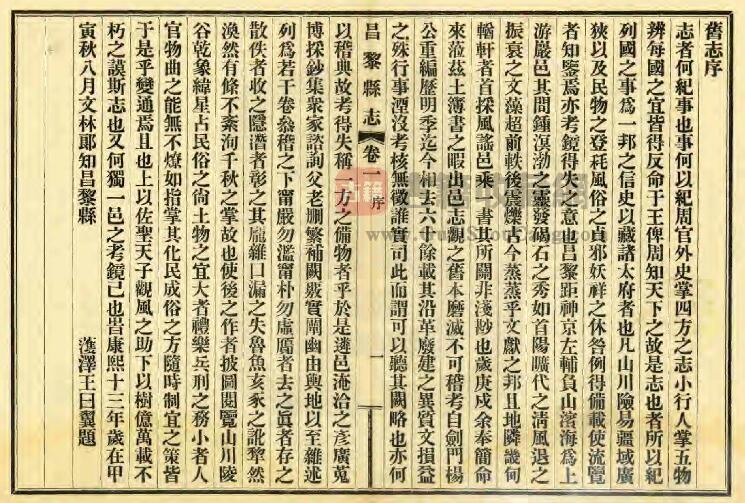 舊志序
志者何紀事也事何以紀周官外史掌四方之志小行人掌五物
辨每國之宜皆得反命于王俾周知天下之故是志也者所以紀
列國之事為一邦之信史以藏諸太府者也凡山川險易疆域廣
狹以及民物之登耗風俗之貞邪妖祥之休咎例得備載使流覽
者知鑒焉亦考鏡得失之意也昌黎距神京左輔負山濱海為上
游嚴邑其間鍾溟渤之靈發碣石之秀如首陽曠代之清風退之
振衰之文藻超前軼後震爍古今蒸蒸乎文獻之邦且地隣畿甸
輶軒者首採風謠邑乘一書其所關非淺尠也歲庚戌余奉簡命
來蒞茲土簿書之暇出邑志觀之舊本磨滅不可稽考自劍門楊
公重編歷明季迄今相去六十餘載其沿革廢建之異質文損益
之殊行事湮沒考核無徵誰實司此而謂可以聽其闕略也亦何
昌黎縣志
卷一
序
一
以稽典故考得失稱一方之備物者乎於是遴邑淹洽之彥廣蒐
博採鈔集衆家諮詢父老刪繁補闕覈實闡幽由輿地以至雜述
列為若干卷叅稽之下甯嚴勿濫甯朴勿虛贗者去之眞者存之
散佚者收之隱潛者彰之其龐雜口漏之失魯魚亥豕之訛犂然
渙然有條不紊洵千秋之掌故也使後之作者披圖閱覽山川陵
谷乾象緯星占民俗之尙土物之宜大者禮樂兵刑之務小者人
官物曲之能無不燎如指掌其化民成俗之方隨時制宜之策皆
于是乎變通焉且也上以佐聖天子觀風之助下以樹億萬載不
朽之謨斯志也又何獨一邑之考鏡已也旹康熙十三年歲在甲
寅秋八月文林郎知昌黎縣
濩澤王曰翼題
古籍
www.TrueStoreCang.com